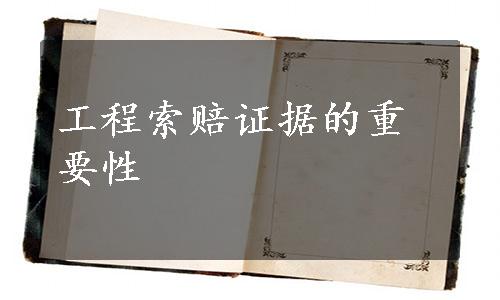 工程索赔证据的重
要性